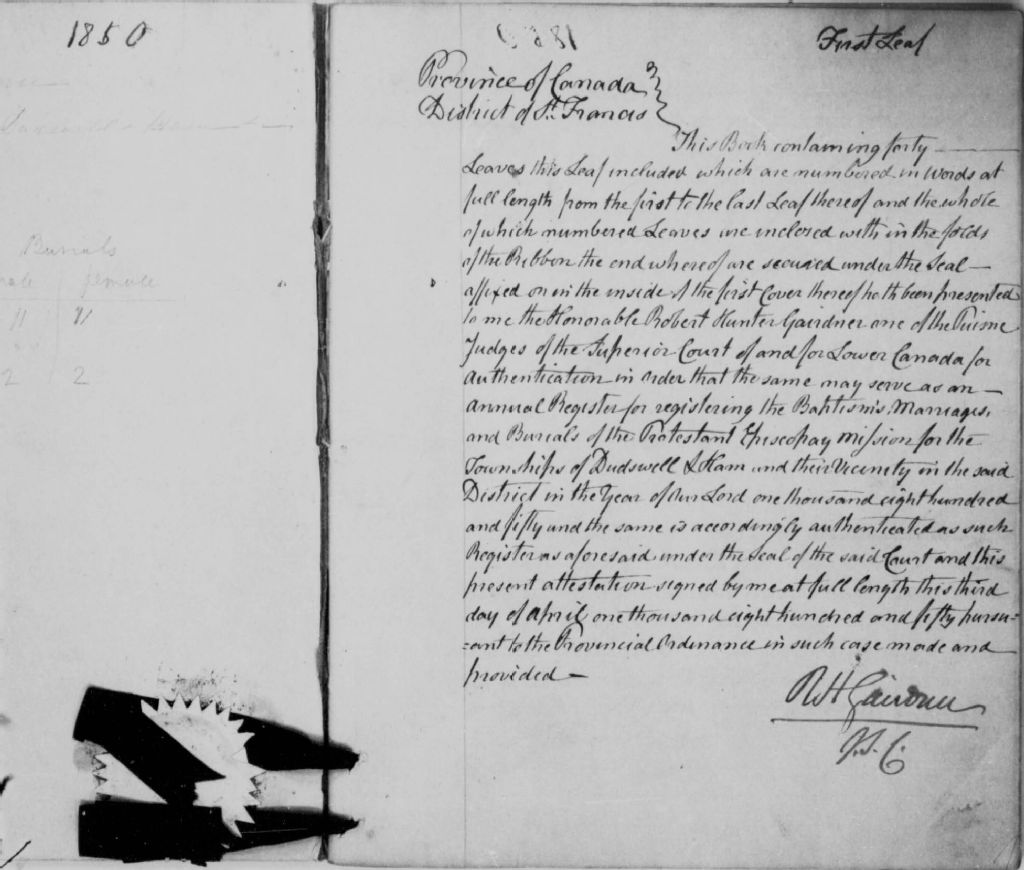 1850
Burials
female
11 11
2 2
First Leaf
Province of Canada
District of St. Francis
This Book containing forty
Leaves this Leaf included which are numbered in words at
full length from the first to the last Leaf thereof and the whole
of which numbered Leaves are inclosed with in the folds
of the Ribbon the end whereof are secured under the Seal
affixed on in the inside of the first Cover thereof hath been presented
to me the Honorable Robert Hunter Gairdner one of the Puisne
Judges of the Superior Court of and for Lower Canada for
authentication in order that the same may serve as an
annual Register for registering the Baptisms, Marriages,
and Burials of the Protestant Episcopay Mission for the
Townships of Dudswell & Ham and their Vicinity in the said
District in the Year of Our Lord one thousand eight hundred
and fifty and the same is accordingly authenticated as such
Register as aforesaid under the seal of the said Court and this
present attestation signed by me at full length this third
day of April one thousand eight hundred and fifty pursu=
=ant to the Provincial Ordinance in such case made and
provided
R H Gairdner
J. S. C.